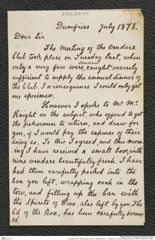 Dumfries July 1878.
Dear Sir
The Meeting of the Vendace
Club took place on Tuesday last, when
only a very few were caught scarcely
sufficient to supply the annual dinner of
the Club. In consequence I could only get
one specimen.
However I spoke to Mr Mc
Knight on the subject, who offered to get
the fishermen to return, and draw for
you, if I would pay the expenses of their
doing so. To this I agreed, and this morn
ing I have received a small box, with
nine vendace beautifully fresh. I have
had them carefully packed into the
box you left, wrapping each in the
tow, and filling up the box with
the Spirits of Wine, also left by you. The
lid of the box, has been carefully screw
ed